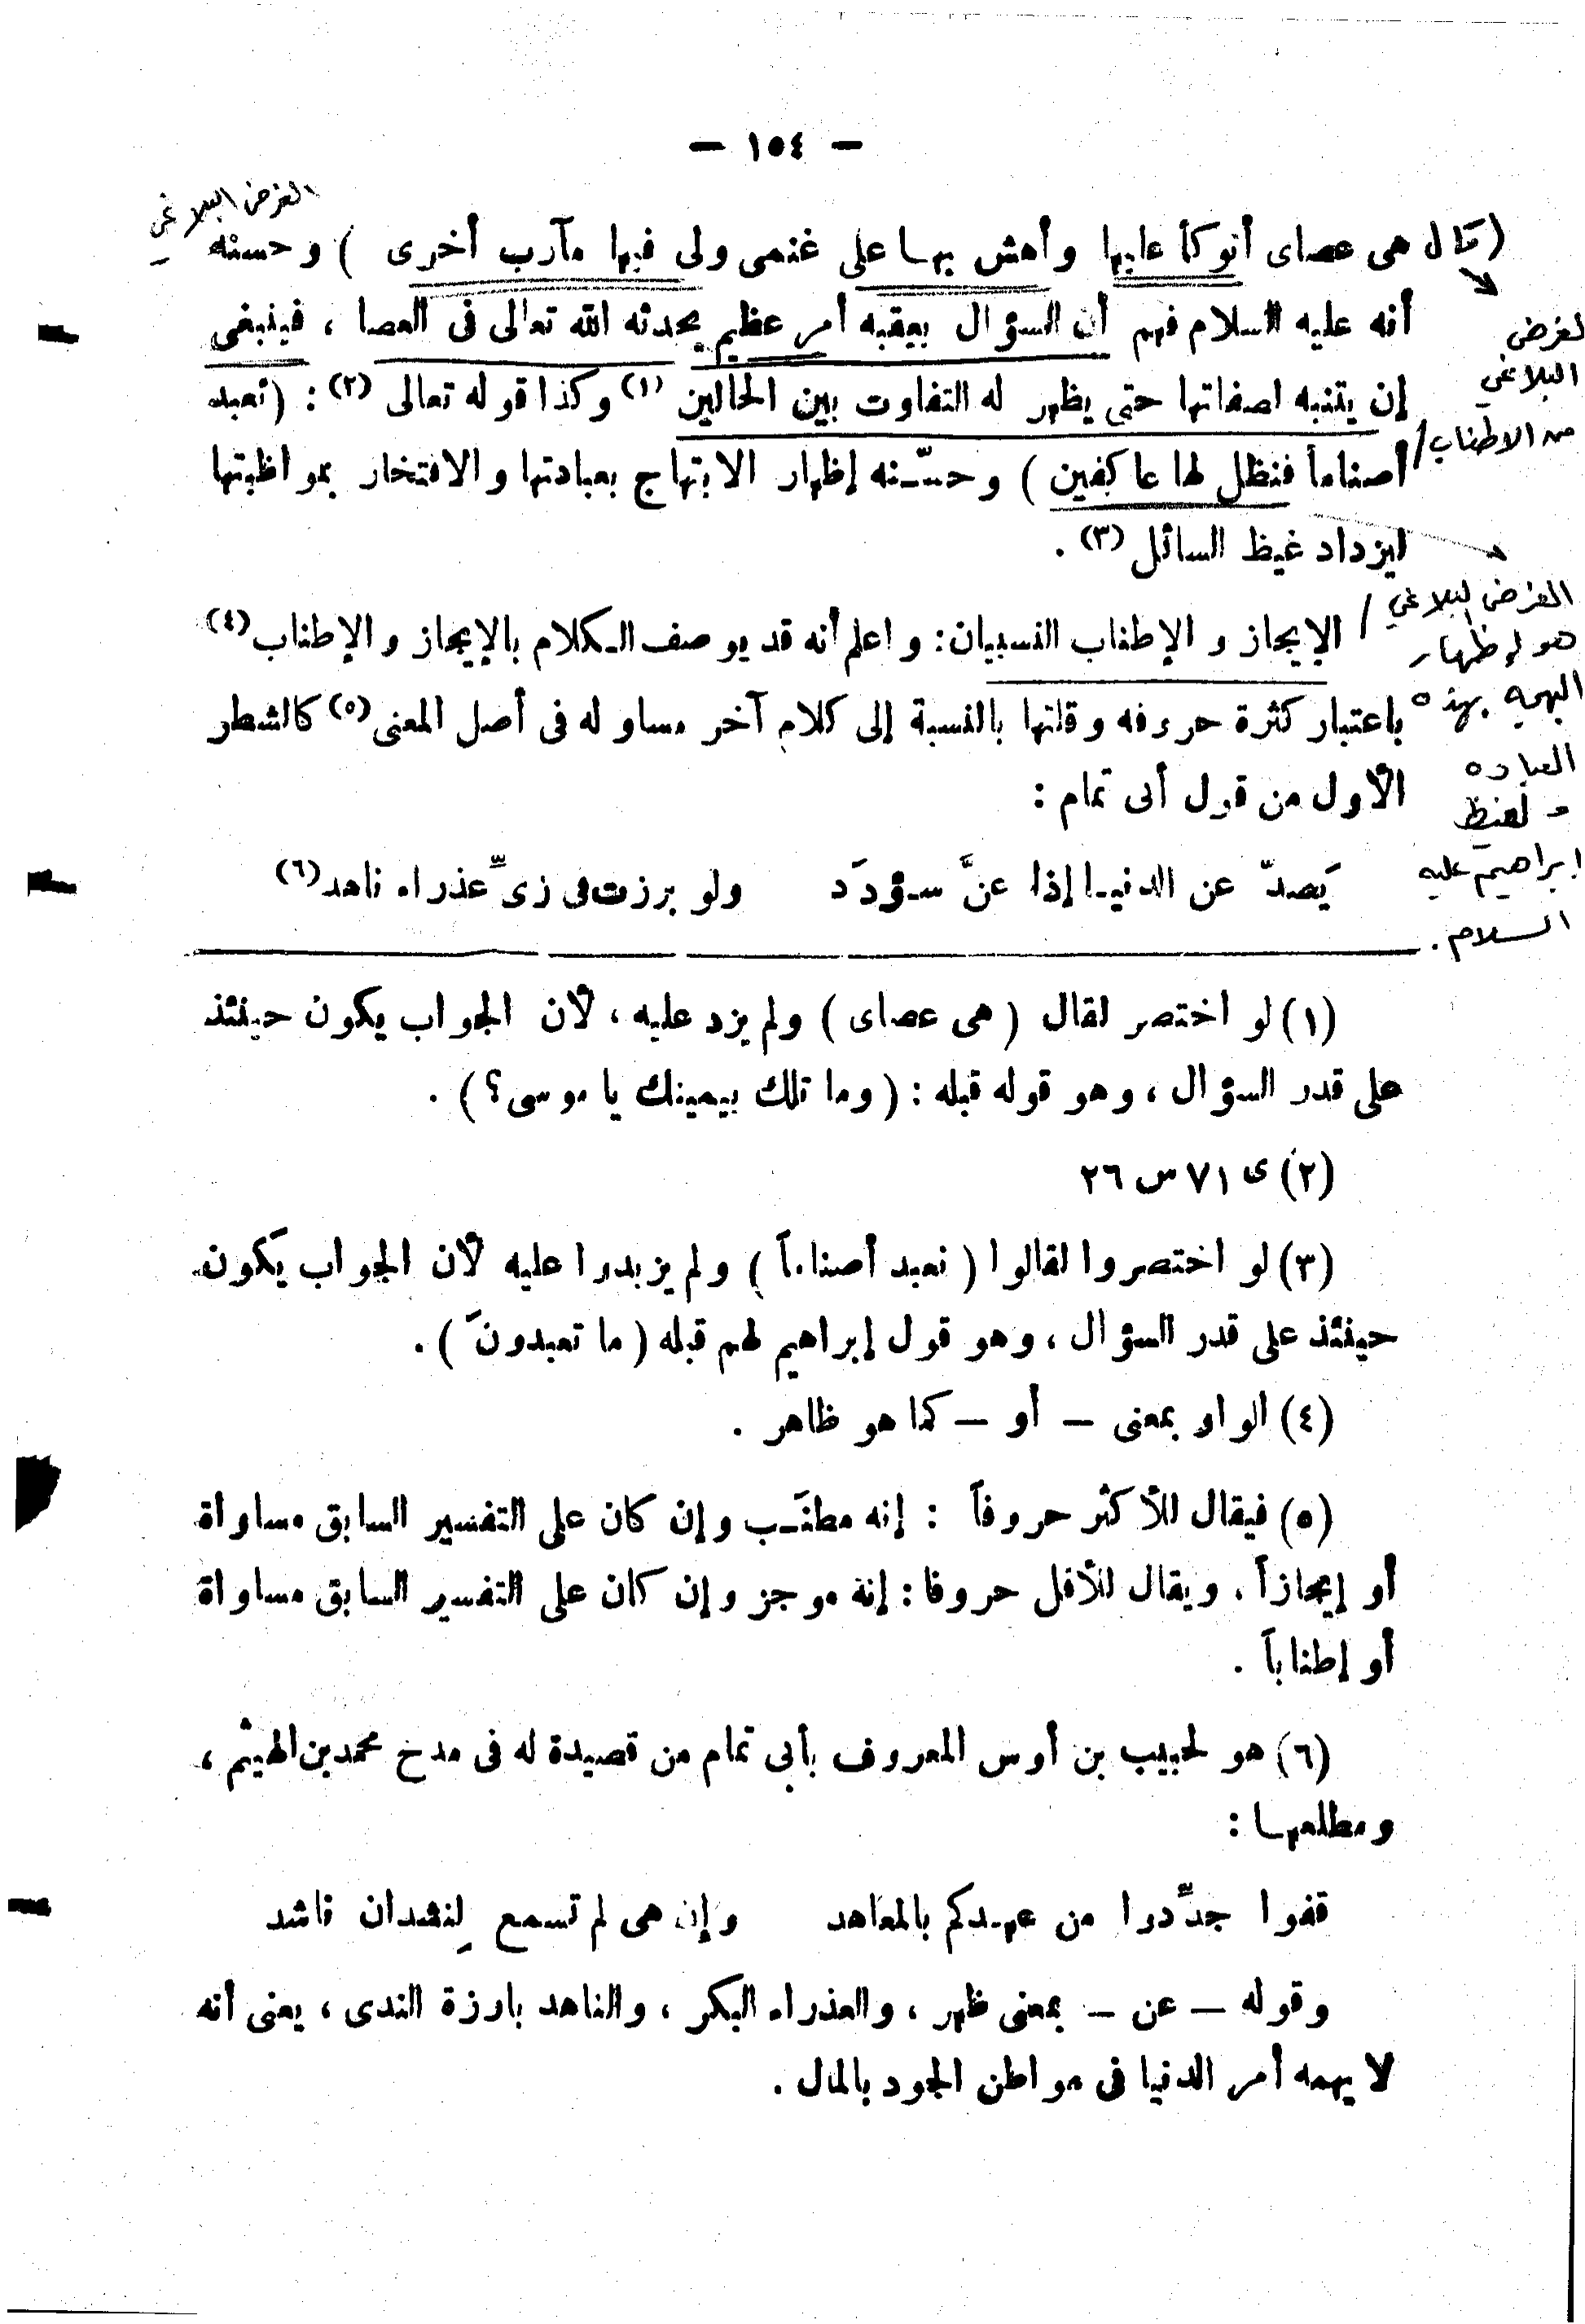 — ١٥٤ —
الغرض البلاغي
(قال هى عصاى أتوكأ عليها وأهش بها على غنمى ولى فيها مآرب أخرى ) وحسنه
أنه عليه السلام فهم أن السؤال يعقبه أمر عظيم يحدثه الله تعالى فى العصا ، فينبغى
إن يتنبه لصفاتها حتى يظهر له التفاوت بين الحالين (١) وكذا قوله تعالى (٢) : ( نعبد
أصناماً فنظل لها عاكفين ) وحسّنه إظهار الابتهاج بعبادتها والافتخار بمواظبتها
ليزداد غيظ السائل (٣) .
لغرض
البلاغي
من الاطناب
الإيجاز والإطناب النسبيان : واعلم أنه قد يوصف الكلام بالإيجاز والإطناب (٤)
باعتبار كثرة حروفه وقلتها بالنسبة إلى كلام آخر مساو له فى أصل المعنى (٥) كالشطر
الأول من قول أبى تمام :
يَصدّ عن الدنيا إذا عنَّ سؤددَ ولو برزت فى زىِّ عذراء ناهد (٦)
الغرض البلاغي
هو إظهار
البهجه بهذه
العباده
و لغيظ
ابراهيم عليه
السلام .
(١) لو اختصر لقال ( هى عصاى ) ولم يزد عليه ، لأن الجواب يكون حينئذ
على قدر السؤال ، وهو قوله قبله : ( وما تلك بيمينك يا موسى ؟ ) .
(٢) ى ٧١ س ٢٦
(٣) لو اختصروا لقالوا ( نعبد أصناماً ) ولم يزيدوا عليه لأن الجواب يكون
حينئذ على قدر السؤال ، وهو قول إبراهيم لهم قبله ( ما تعبدونَ ) .
(٤) الواو بمعنى — أو — كما هو ظاهر .
(٥) فيقال للأكثر حروفاً : إنه مطنَب وإن كان على التفسير السابق مساواة
أو إيجازاً . ويقال للأقل حروفا : إنة موجز وإن كان على التفسير السابق مساواة
أو إطناباً .
(٦) هو لحبيب بن أوس المعروف بأبى تمام من قصيدة له فى مدح محمد بن الهيثم ،
ومطلعها :
قفوا جدِّدوا من عهدكم بالمعاهد وإن هى لم تسمع لِنشدان ناشد
وقوله — عن — بمعنى ظهر ، والعذراء البكر ، والناهد بارزة الثدى ، يعنى أنه
لا يهمه أمر الدنيا فى مواطن الجود بالمال .